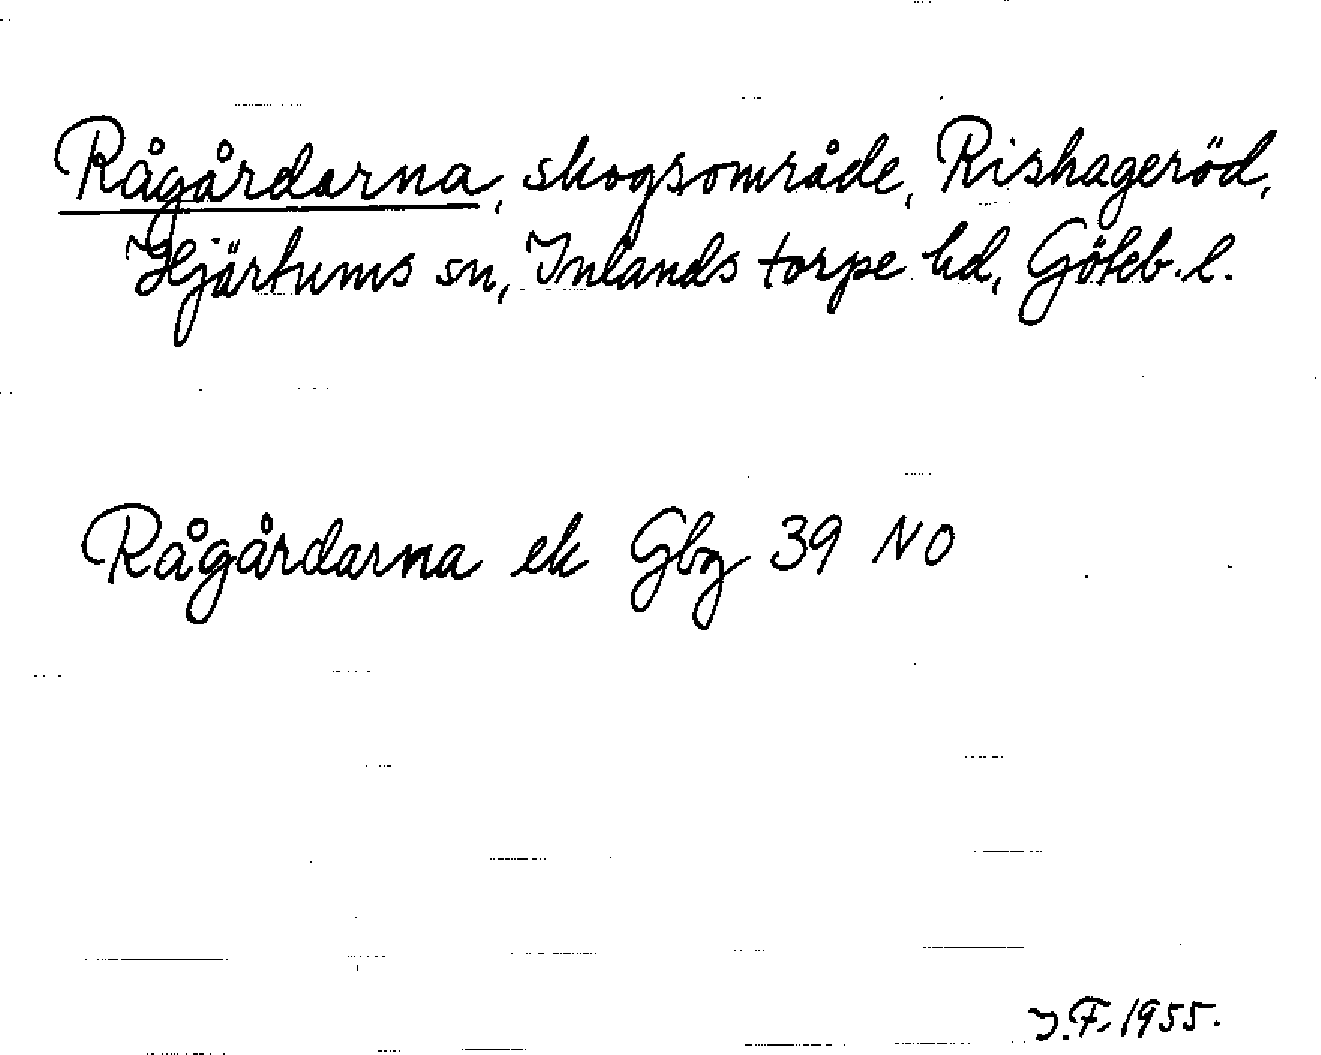 Rågårdarna, skogsområde, Rishageröd,
Hjärtums sn, Inlands torpe hd, Göteb. l.
Rågårdarna ek Gbg 39 NO
J.F. 1955.